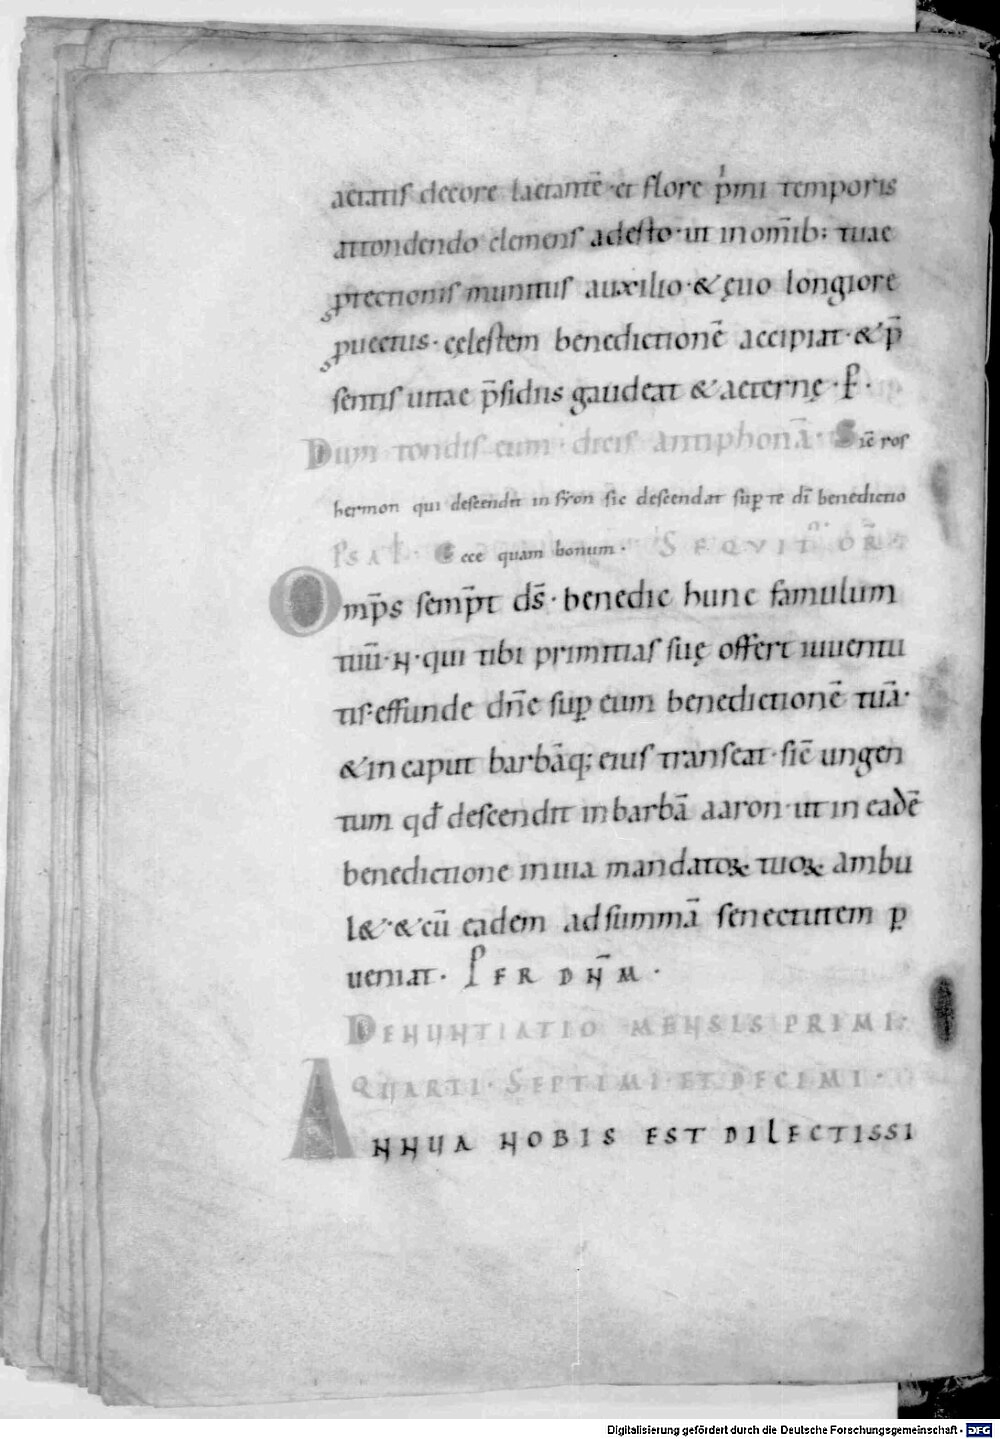 aetatis decore laetantē · et flore p̍mi temporis
attondendo clemens adesto · ut in om̄ib; tuae
ꝓtectionis munitus auxilio · & ęuo longiore
ꝓuectus · cęlestem benedictionē accipiat · & p̄
sentis uitae p̄sidiis gaudeat & aeternę · P̱ ·
Dum tondis eum dicis antiphonā · Sic̄ ros
hermon qui descendit in syon sic descendat suꝑ te dī benedictio
Psal · Ecce quam bonum · SEQUIT OR̄
Omp̄s semp̄t ds̄ · benedic hunc famulum
tuū · N · qui tibi primitias suę offert iuuentu
tis · effunde dn̄e suꝑ eum benedictionē tuā ·
& in caput barbāq; eius transeat · sic̄ ungen
tum qđ descendit in barbā aaron · ut in eadē
benedictione in uia mandatoꝝ tuoꝝ ambu
l& · & cū eadem ad summā senectutem ꝑ
ueniat · PER DN̄M ·
DENUNTIATIO MENSIS PRIMI ·
QUARTI · SEPTIMI · ET DECIMI ·
ANNUA NOBIS EST DILECTISSI
Digitalisierung gefördert durch die Deutsche Forschungsgemeinschaft - DFG